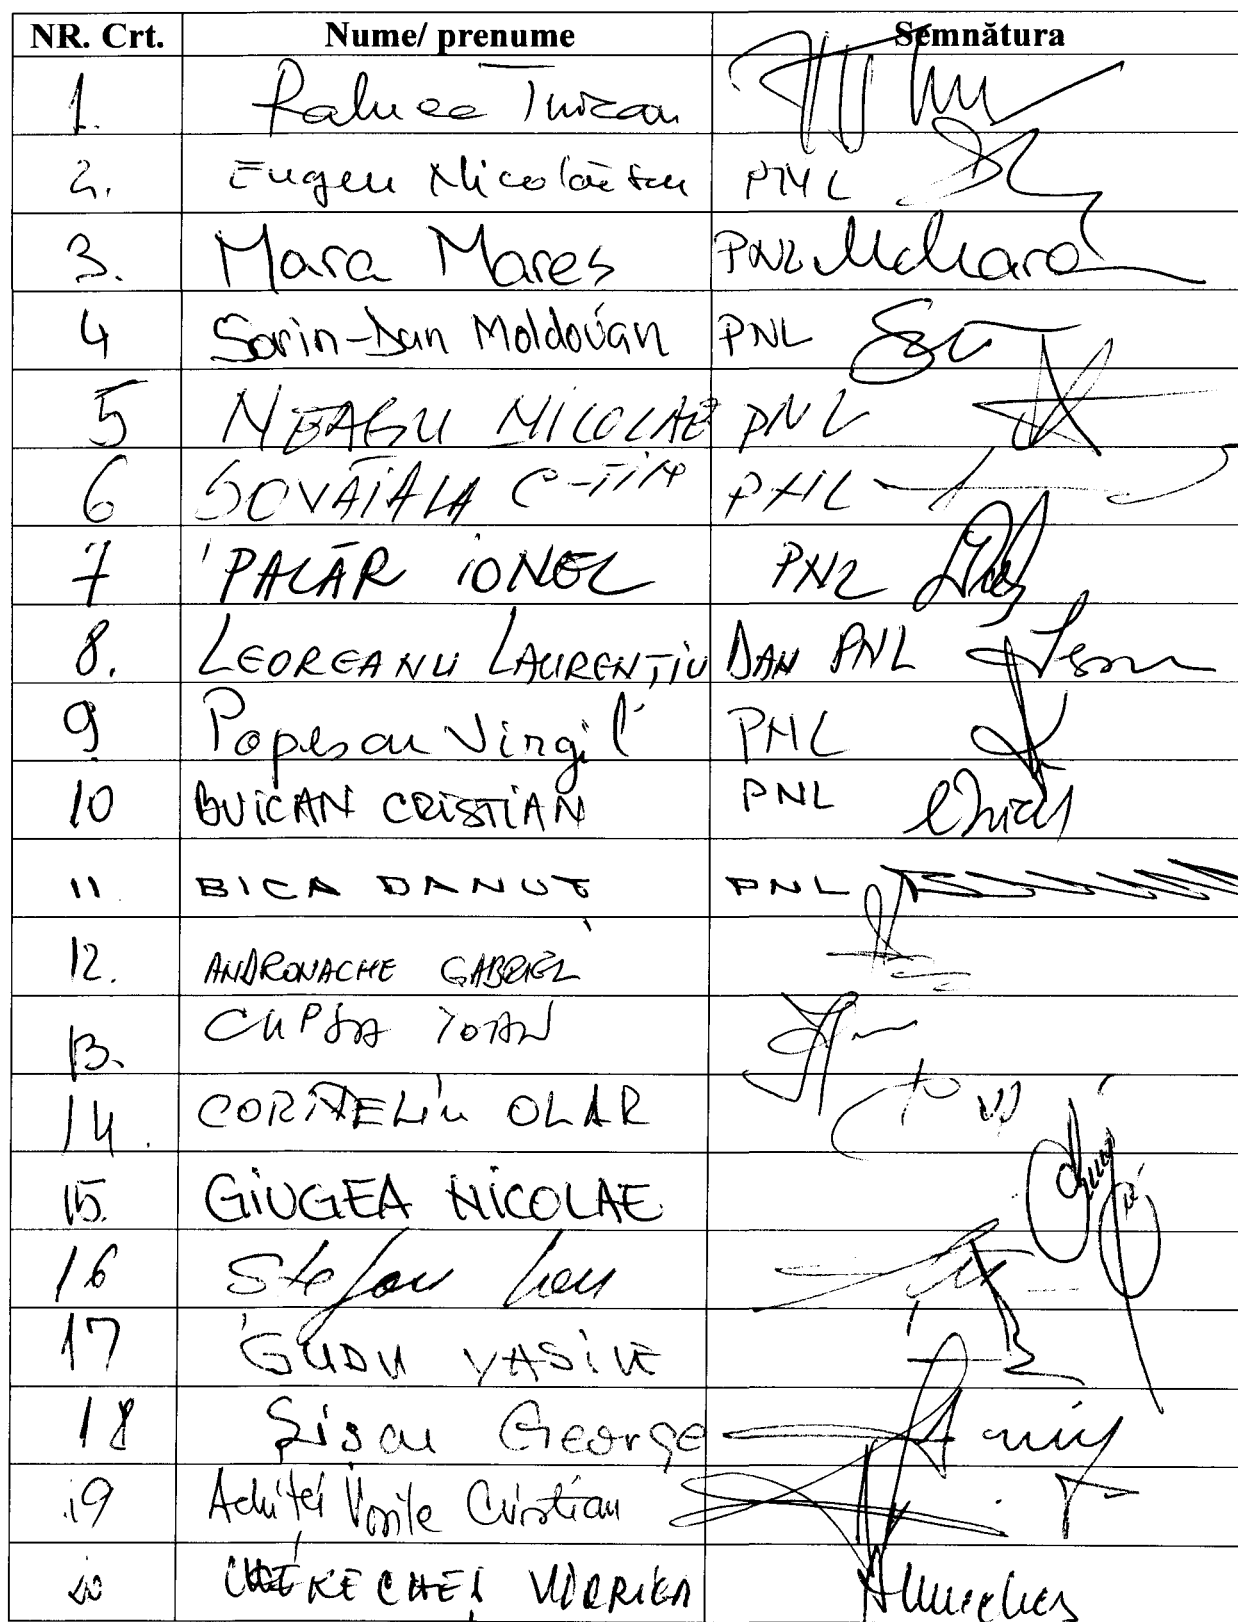 NR. Crt. Nume/ prenume Semnătura
1. Raluca Turcan
2. Eugen Nicolăescu PNL
3. Mara Mares PNL
4 Sorin-Dan Moldovan PNL
5 NEAGU NICOLAE PNL
6 SOVĂIALA C-TIN PNL
7 PALĂR IONEL PNL
8. LEOREANU LAURENȚIU DAN PNL
9 Popescu Virgil PNL
10 BUICAN CRISTIAN PNL
11 BICA DANUT PNL
12. ANDRONACHE GABRIEL
13. CUPSA IOAN
14. CORNELIU OLAR
15. GIUGEA NICOLAE
16 Stefan Ion
17 GUDU VASILE
18 Șișcu George
19 Achiței Vasile Cristian
20 VIORICA